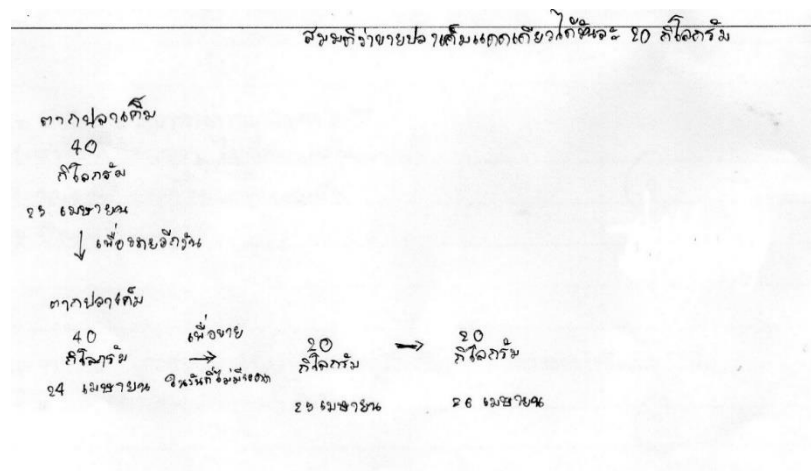 สมมติว่าขายปลาเค็มแดดเดียวได้วันละ 20 กิโลกรัม
ตากปลาเค็ม
40
กิโลกรัม
23 เมษายน
เพื่อขายอีกวัน
ตากปลาเค็ม
40
กิโลกรัม
24 เมษายน
เพื่อขาย
ในวันที่ไม่มีแดด
20
กิโลกรัม
25 เมษายน
20
กิโลกรัม
26 เมษายน